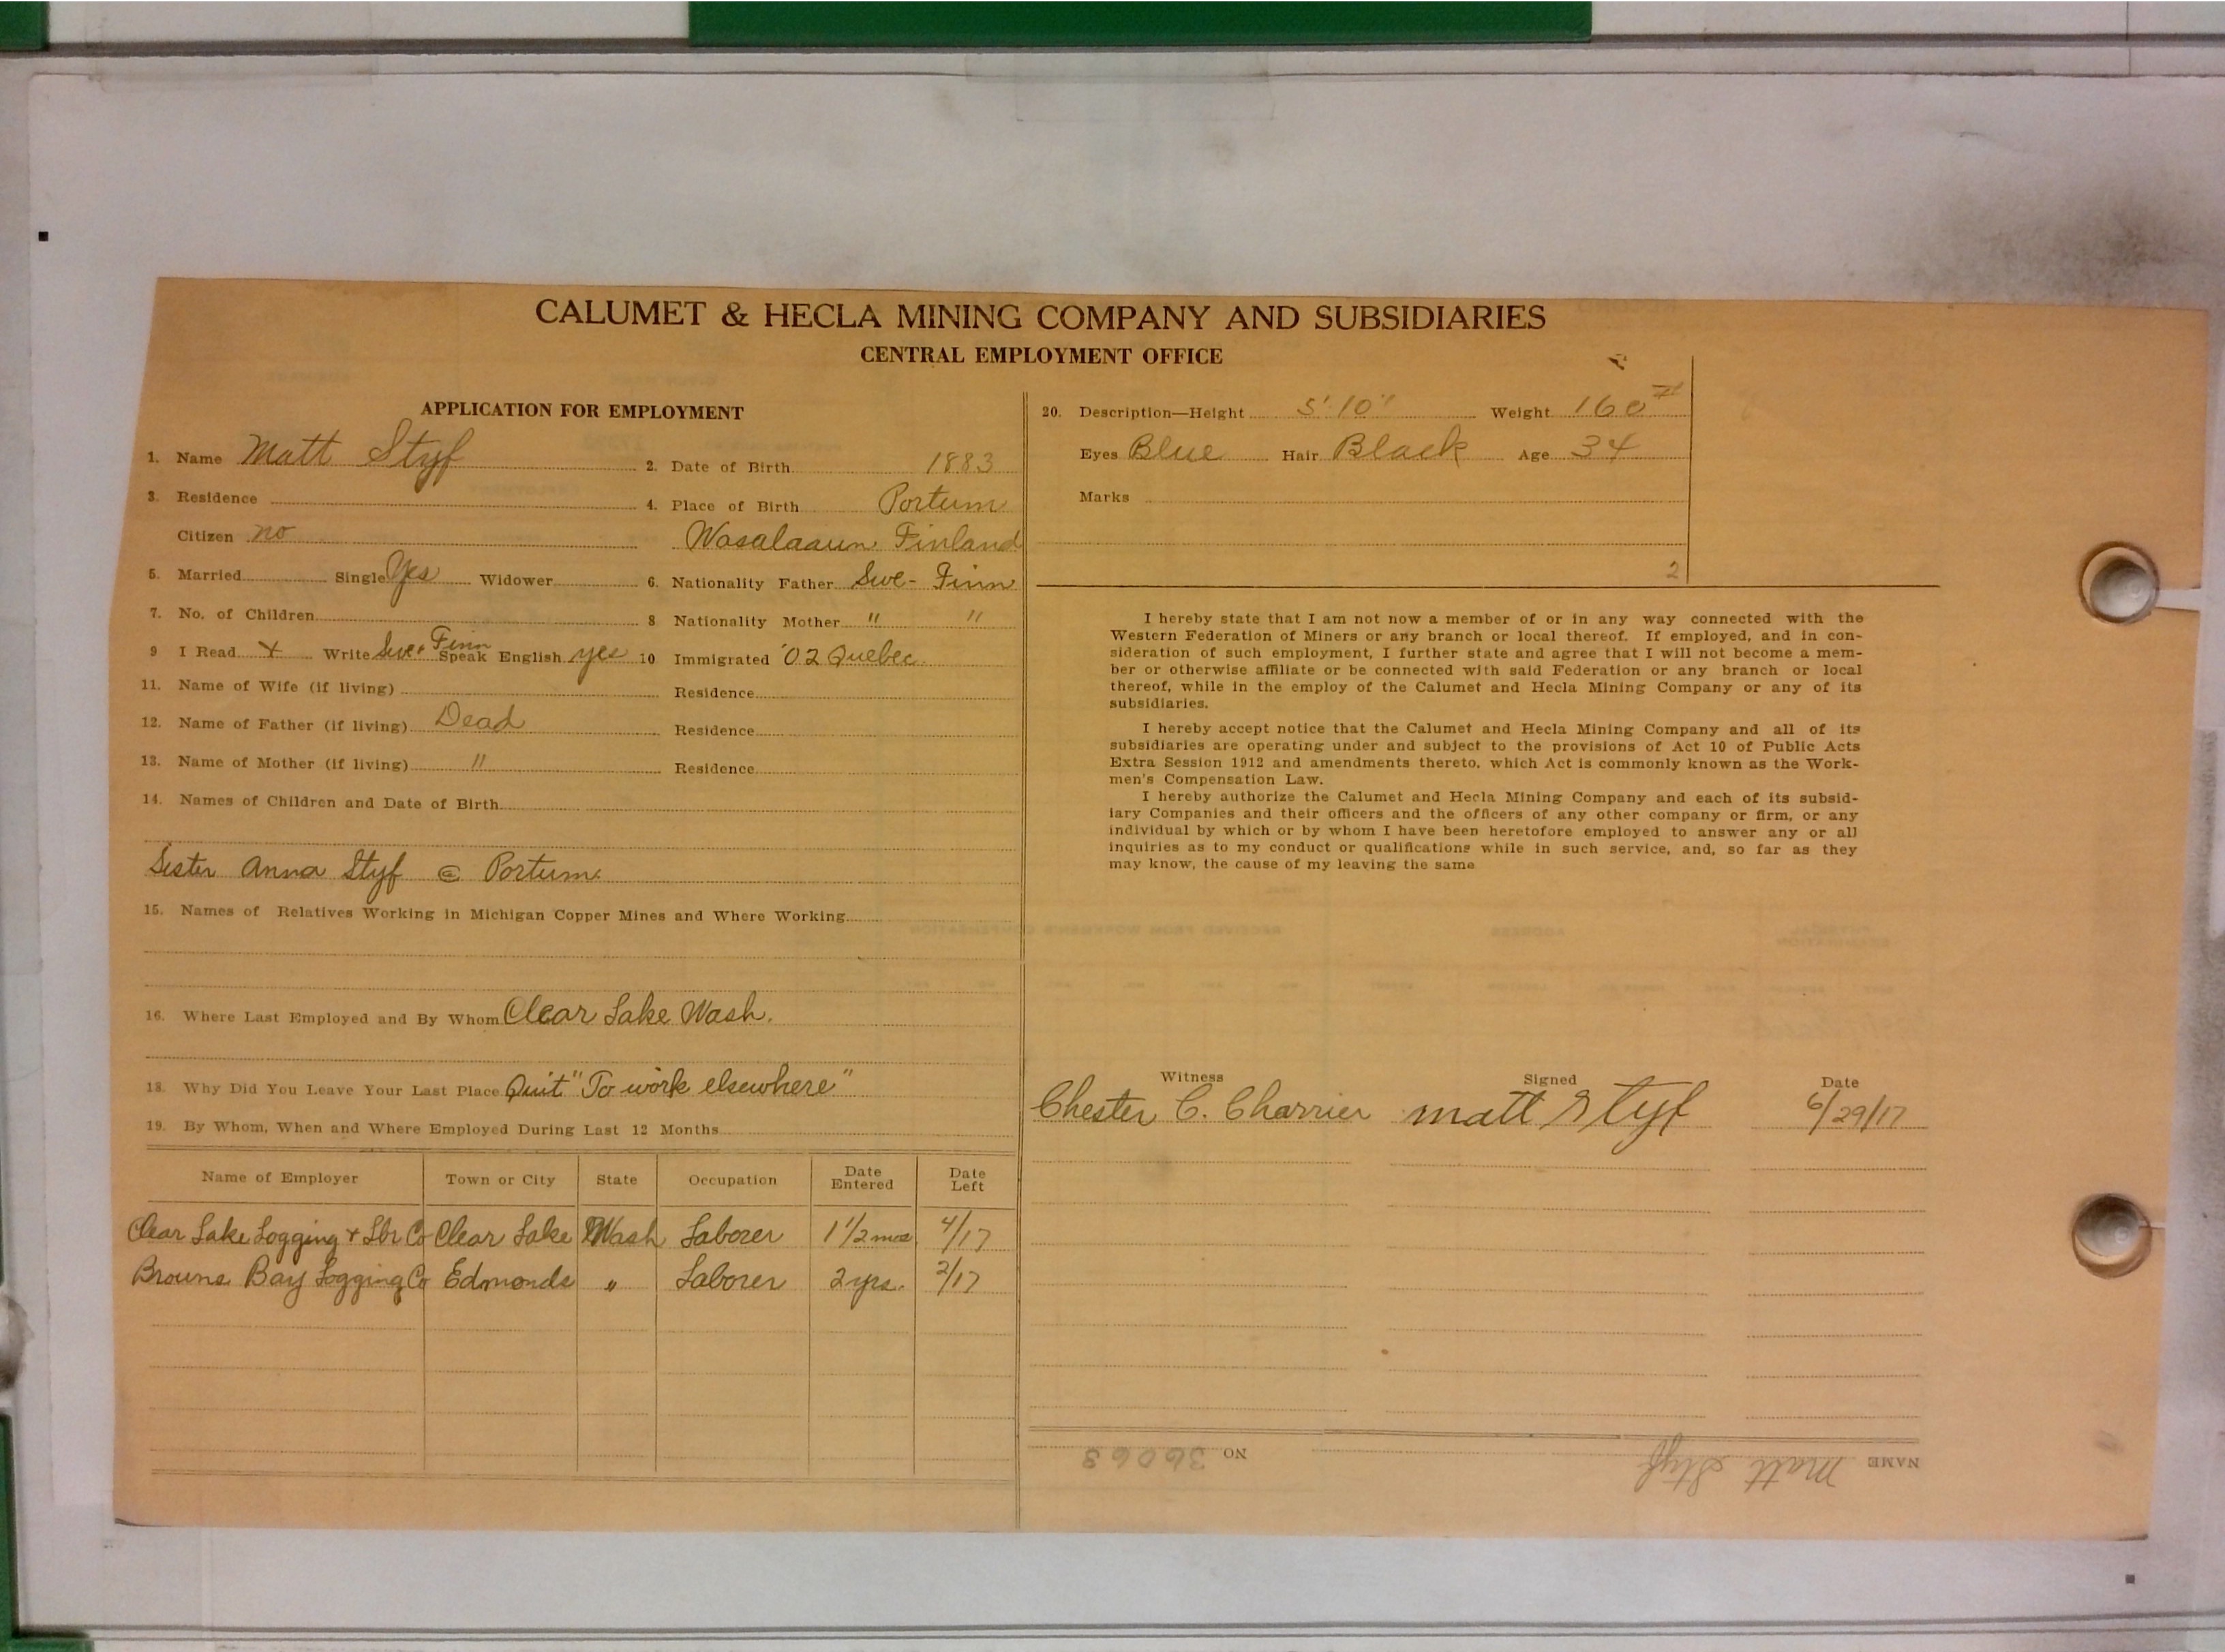 CALUMET & HECLA MINING COMPANY AND SUBSIDIARIES
CENTRAL EMPLOYMENT OFFICE
APPLICATION FOR EMPLOYMENT
1. Name Matt Styf 2. Date of Birth 1883
3. Residence 4. Place of Birth Portum
Citizen no Wasalaaun Finland
5. Married Single Yes Widower 6. Nationality Father Swe- Finn
7. No. of Children 8 Nationality Mother " "
9 I Read + Write Swe + Finn Speak English yes 10 Immigrated '02 Quebec.
11. Name of Wife (if living) Residence
12. Name of Father (if living) Dead Residence
13. Name of Mother (if living) " Residence
14. Names of Children and Date of Birth
Sister Anna Styf @ Portum
15. Names of Relatives Working in Michigan Copper Mines and Where Working
16. Where Last Employed and By Whom Clear Lake Wash.
18. Why Did You Leave Your Last Place Quit "To work elsewhere"
19. By Whom, When and Where Employed During Last 12 Months
Name of Employer Town or City State Occupation Date Entered Date Left
Clear Lake Logging + Lbr Co Clear Lake Wash Laborer 1 1/2 mos 4/17
Browns Bay Logging Co Edmonds " Laborer 2 yrs. 2/17
20. Description—Height 5' 10" Weight 160#
Eyes Blue Hair Black Age 34
Marks
2
I hereby state that I am not now a member of or in any way connected with the
Western Federation of Miners or any branch or local thereof. If employed, and in con-
sideration of such employment, I further state and agree that I will not become a mem-
ber or otherwise affiliate or be connected with said Federation or any branch or local
thereof, while in the employ of the Calumet and Hecla Mining Company or any of its
subsidiaries.
I hereby accept notice that the Calumet and Hecla Mining Company and all of its
subsidiaries are operating under and subject to the provisions of Act 10 of Public Acts
Extra Session 1912 and amendments thereto, which Act is commonly known as the Work-
men's Compensation Law.
I hereby authorize the Calumet and Hecla Mining Company and each of its subsid-
iary Companies and their officers and the officers of any other company or firm, or any
individual by which or by whom I have been heretofore employed to answer any or all
inquiries as to my conduct or qualifications while in such service, and, so far as they
may know, the cause of my leaving the same
Witness Signed Date
Chester C. Charrier Matt Styf 6/29/17
NAME Matt Styf NO 36063